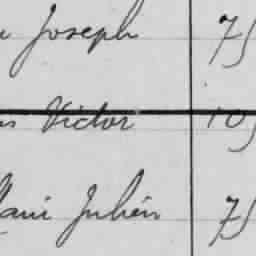 Joseph 75
Victor 105
Julien 75